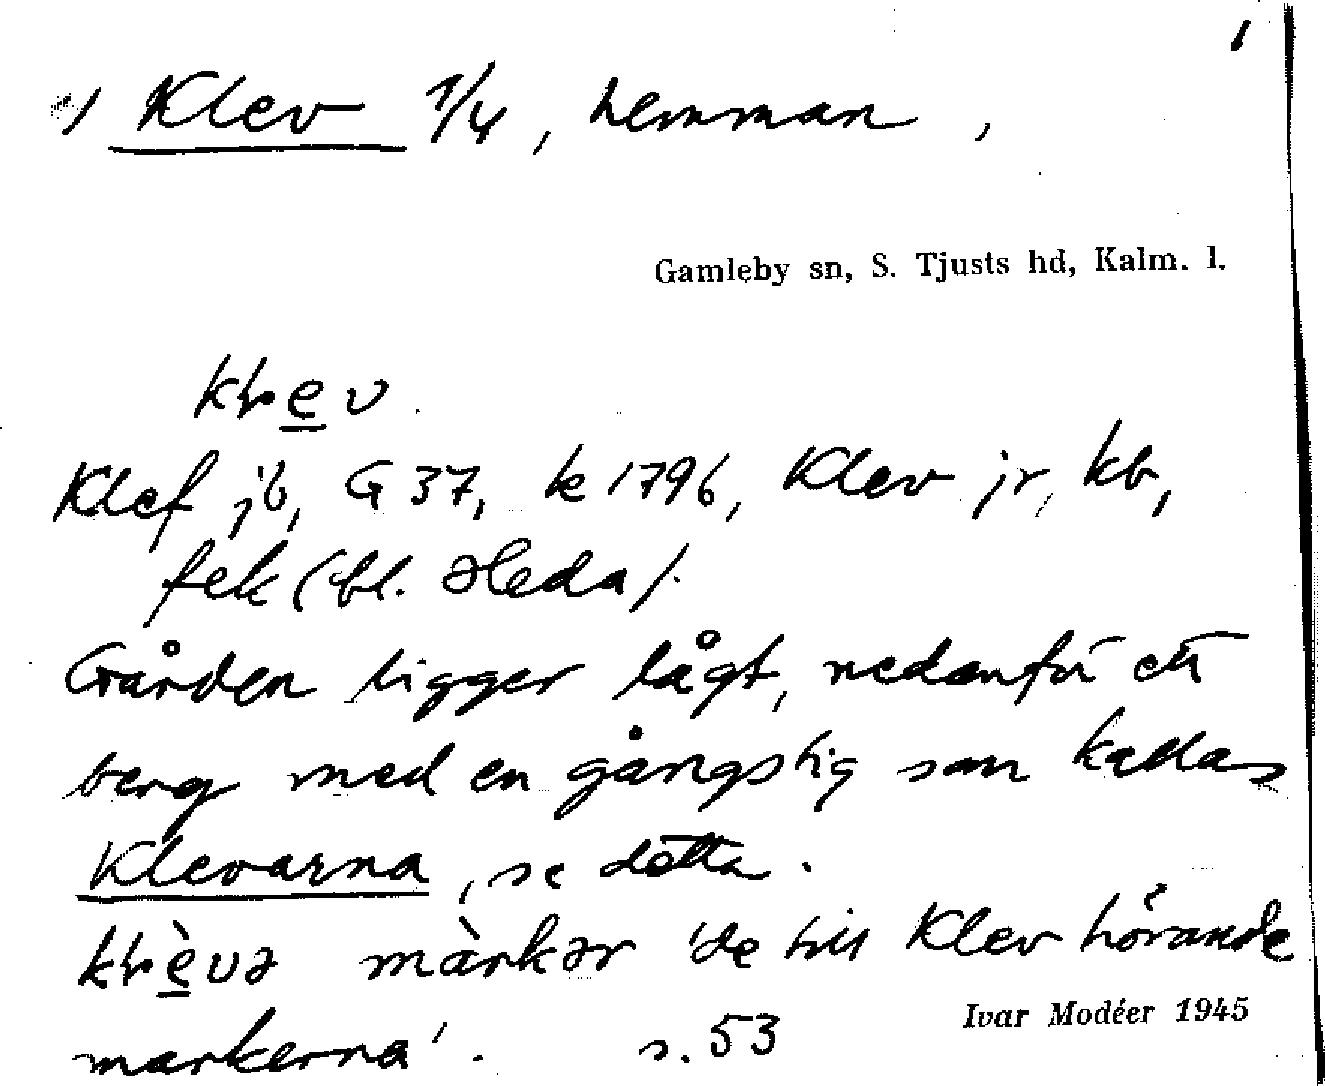 1
Klev 1/4, hemman,
Gamleby sn, S. Tjusts hd, Kalm. l.
klev.
Klef jb, G 37, k 1796, Klev jr, kb,
fek (bl. Heda).
Gården ligger lågt, nedanför ett
berg med en gångstig som kallas
Klevarna, se detta.
klèvə màrkər 'de till Klev hörande
Ivar Modéer 1945
markerna'. s. 53